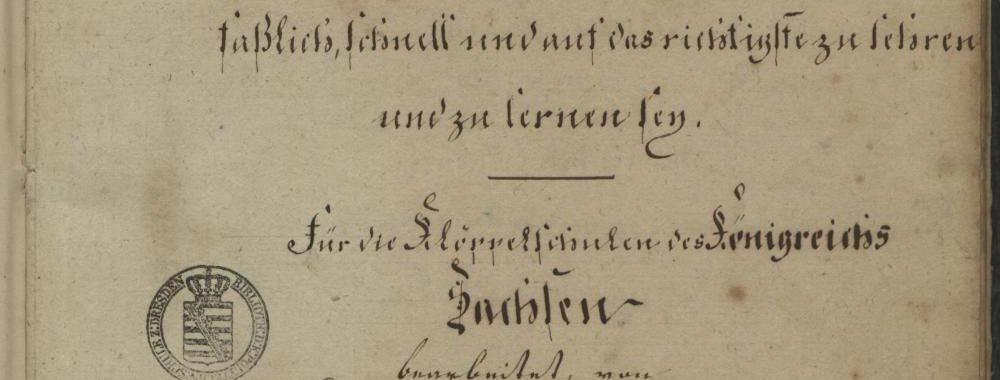 faßlich, schnell und auf das richtigste zu lehren
und zu lernen sey.
Für die Klöppelschulen des Königreichs
Sachsen
bearbeitet, von